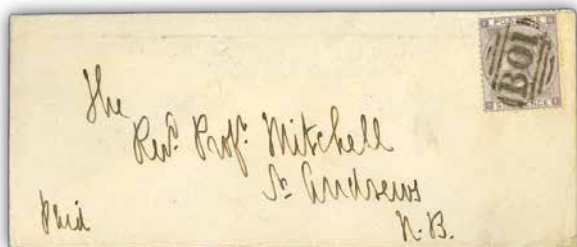 B01
The
Revd. Prof. Mitchell
St. Andrews
Paid
N.B.